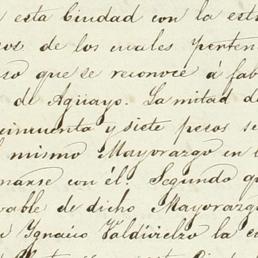 esta Ciudad con la est
os de los cuales perten
so que se reconoce á fab
de Agüayo. La mitad de
cincuenta y siete pesos se
mismo Mayorazgo en
narse con él. Segundo qu
vable de dicho Mayorazg
Ygnacio Valdivielzo la c